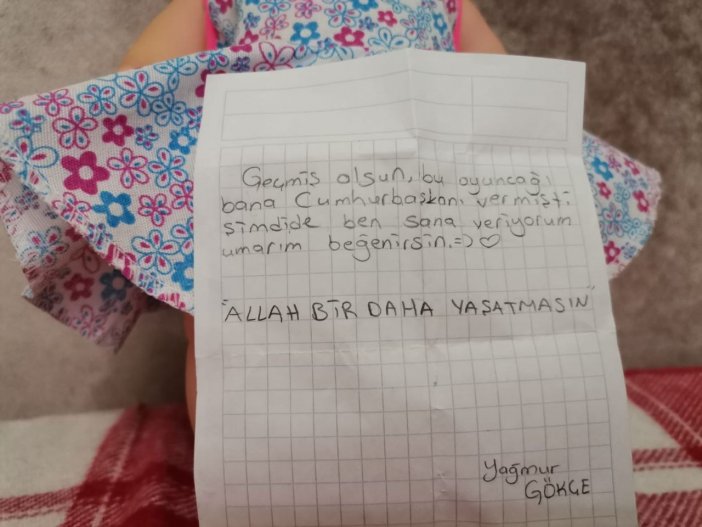 Geçmiş olsun, bu oyuncağı
bana Cumhurbaşkanı vermişti
şimdide ben sana veriyorum
umarım beğenirsin.=) ♡
"ALLAH BİR DAHA YAŞATMASIN"
Yağmur
GÖKÇE